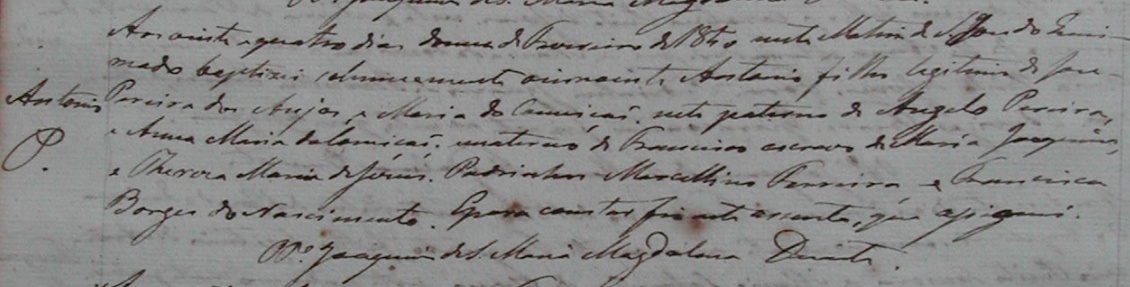 Aos vinte e quatro dias do mez de Fevereiro de 1840 nesta Matriz de S. Jose do
baptizei solemnemente o innocente Antonio filho legitimo de Jose
Antonio Pereira dos Anjos, e Maria da Conceicaõ, neto paterno de Angelo Pereira,
P. e Anna Maria da Conceicaõ; e materno de Francisco escravo de Maria Joaquina,
e Thereza Maria de Jesus. Padrinhos Marcellino Ferreira e Francisca
Borges do Nascimento. E para constar fiz este assento, que assignei.
O Vigr.º Joaquim de S. Maria Magdalena Duarte.